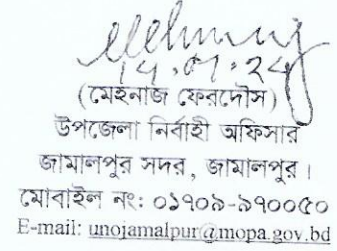 14.07.24
(মেহনাজ ফেরদৌস)
উপজেলা নির্বাহী অফিসার
জামালপুর সদর, জামালপুর।
মোবাইল নং: ০১৭০৯-৯৭০০৫০
E-mail: unojamalpur@mopa.gov.bd